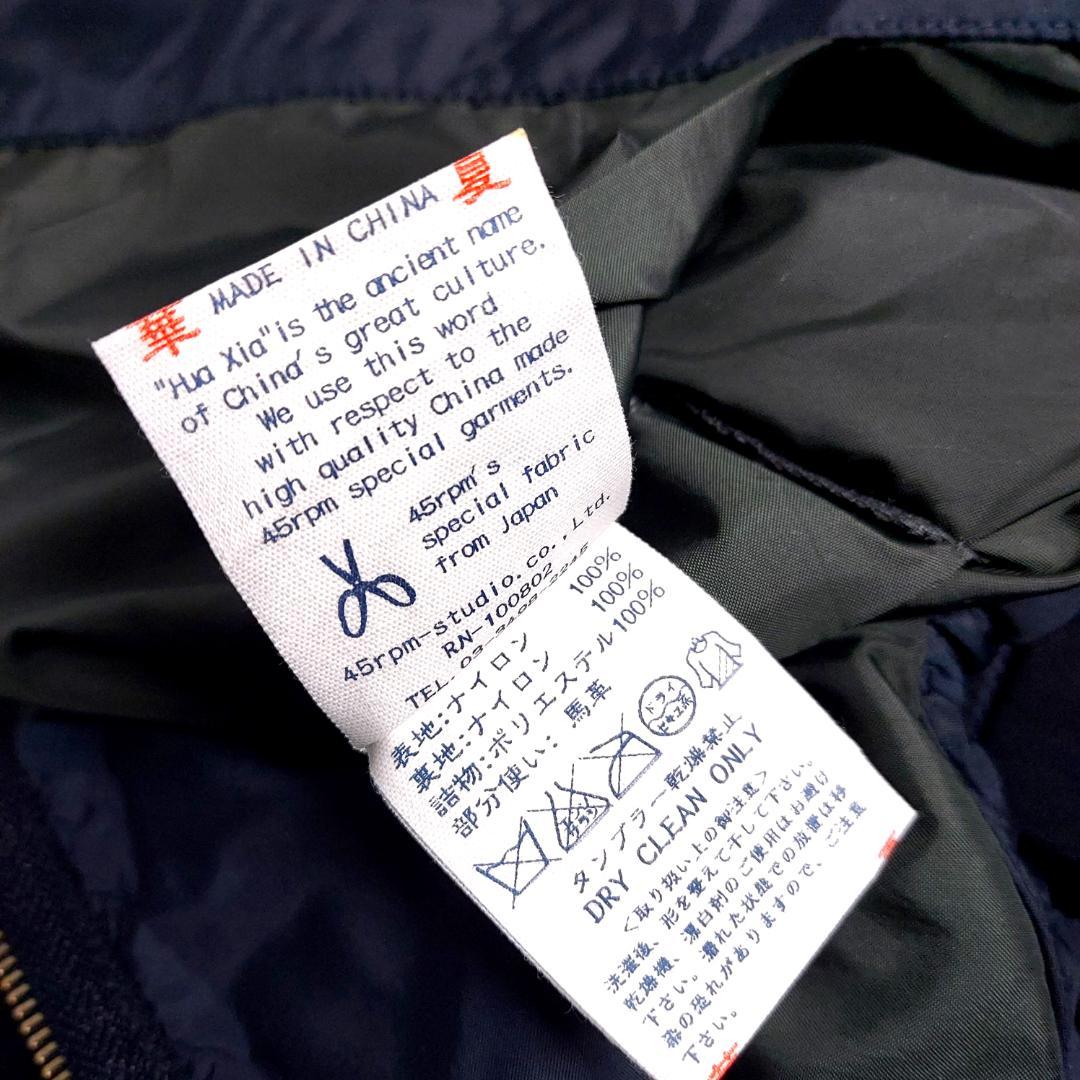 華 MADE IN CHINA 夏
"Hua Xia" is the ancient name
of China's great culture.
We use this word
with respect to the
high quality China made
45rpm special garments.
45rpm's
special fabric
from Japan
45rpm-studio.co.,Ltd.
RN-100802
TEL.
表地:ナイロン 100%
裏地:ナイロン 100%
詰物:ポリエステル100%
部分使い: 馬革
エンソ
サラシ
ドライ
セキユ系
タンブラー乾燥禁止
DRY CLEAN ONLY
<取り扱い上の御注意>
洗濯後、形を整えて干して下さい。
乾燥機、漂白剤のご使用はお避け
下さい。濡れた状態での放置は移
染の恐れがありますので、ご注意
下さい。